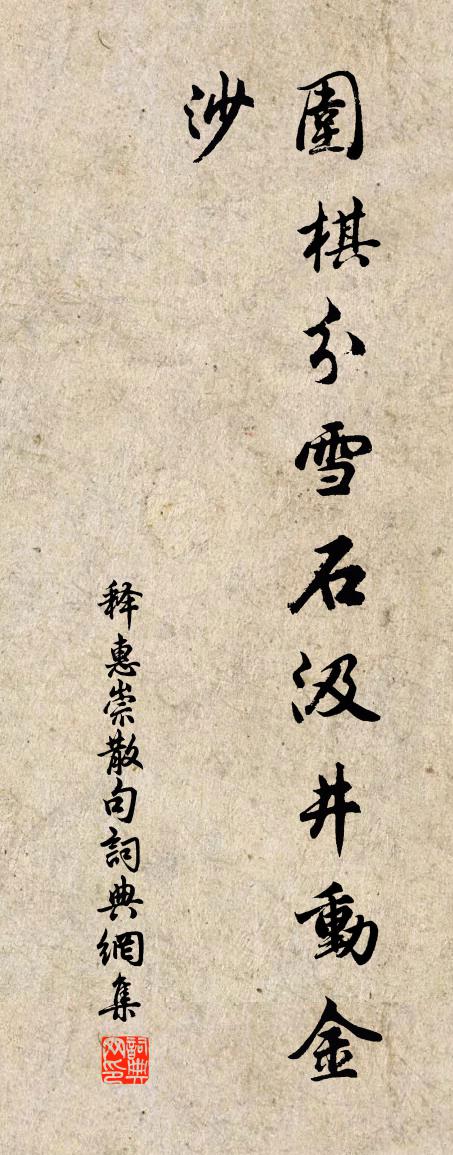 圍棋分雪石汲井動金
沙
释惠崇散句詞典網集
詞典
网印